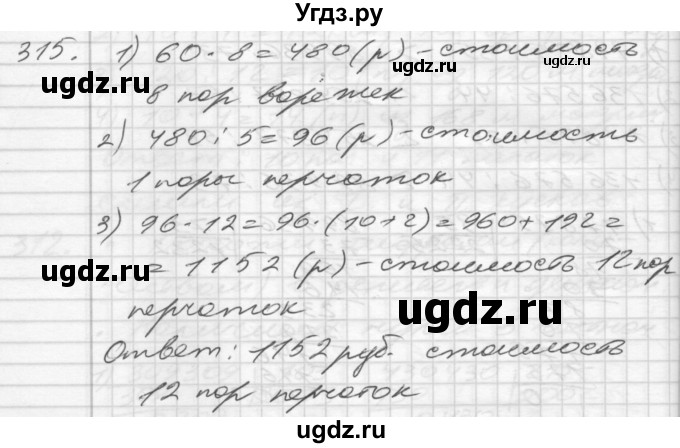 Угдз.ру
315. 1) 60 · 8 = 480 (р) - стоимость
8 пар варежек
2) 480 : 5 = 96 (р) - стоимость
1 пары перчаток
3) 96 · 12 = 96 · (10+2) = 960 + 192 =
= 1152 (р) - стоимость 12 пар
перчаток
Ответ: 1152 руб. стоимость
12 пар перчаток
ugdz.ru
ugdz.ru
ugdz.ru
ugdz.ru
ugdz.ru
ugdz.ru
ugdz.ru